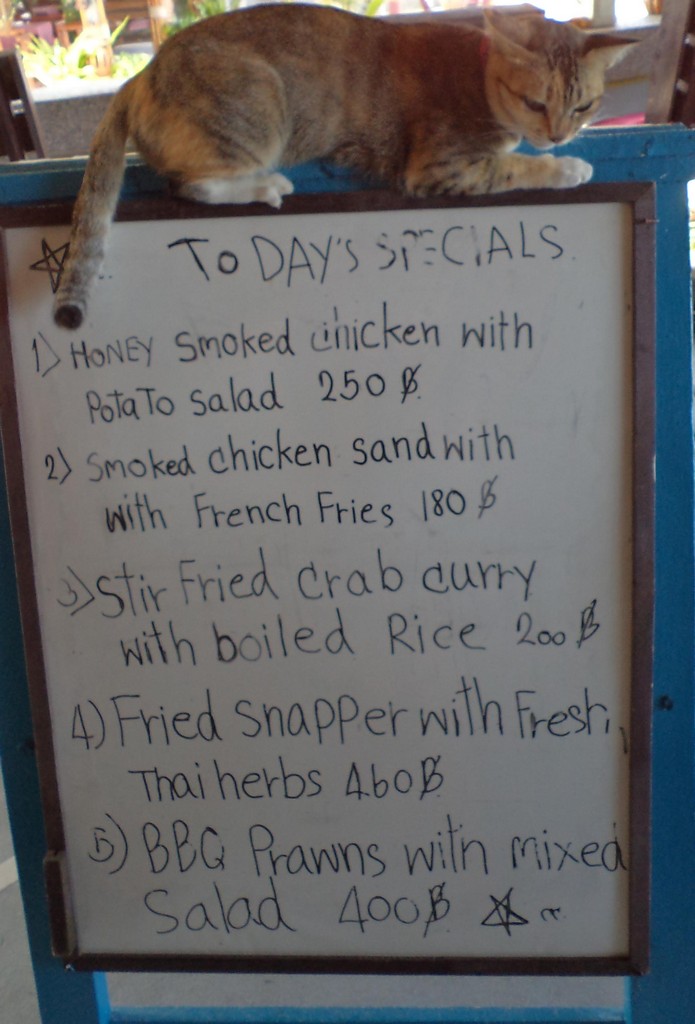 TODAY'S SPECIALS
1) HONEY Smoked chicken with
Potato salad 250 ฿
2) Smoked chicken sandwith
with French Fries 180 ฿
3) Stir Fried crab curry
with boiled Rice 200 ฿
4) Fried Snapper with Fresh
Thai herbs 460 ฿
5) BBQ Prawns with mixed
Salad 400 ฿